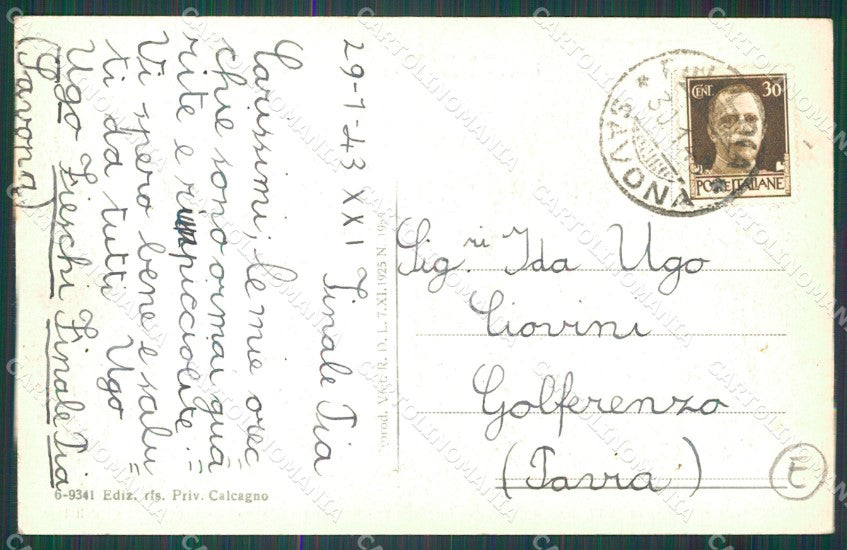 29-7-43 XXI Finale Pia
Carissimi; le mie orec
chie sono ormai gua=
rite e rimpicciolite.=
Vi spero bene e salu
ti da tutti Ugo =
Ugo Fieschi Finale Pia
(Savona)
Sig.ri Ida Ugo
Ciovini
Golferenzo
(Pavia)
E
CENT. 30
POSTE ITALIANE
SAVONA
Riprod. Viet. R. D. L. 7.XI.1925 N. 1950
6-9341 Ediz. rfs. Priv. Calcagno
CARTOLINOMANIA